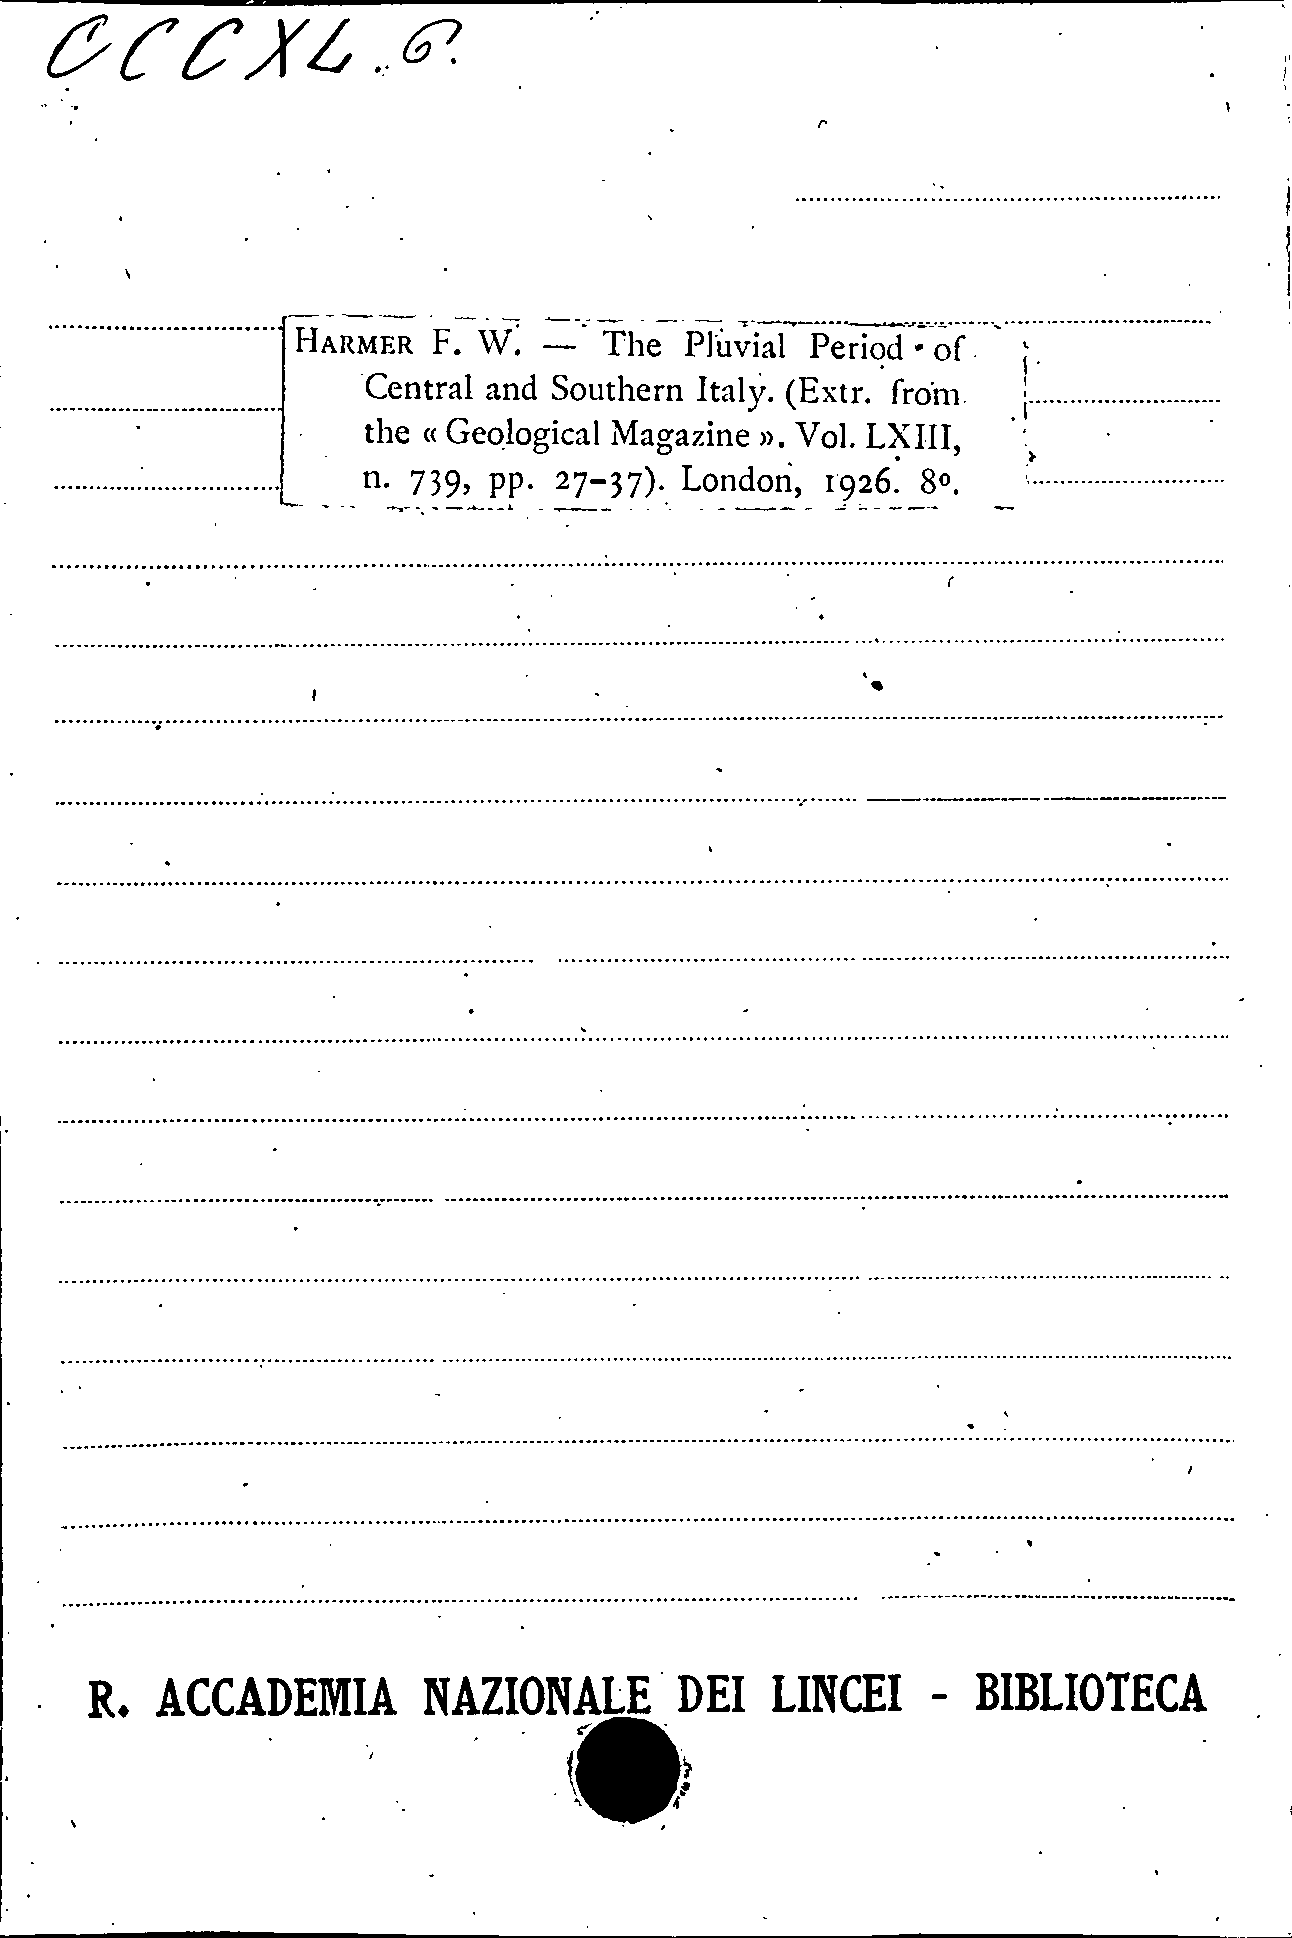 CCCXL. 6.
HARMER F. W. — The Pluvial Period of
Central and Southern Italy. (Extr. from
the « Geological Magazine ». Vol. LXIII,
n. 739, pp. 27-37). London, 1926. 8º.
R. ACCADEMIA NAZIONALE DEI LINCEI - BIBLIOTECA